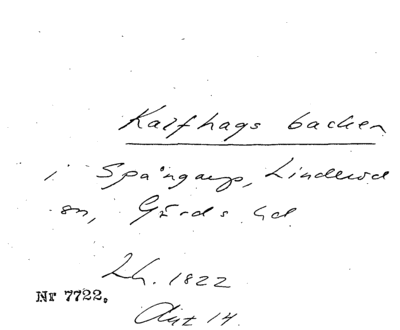 Kalfhags backen
i Spångarp, Linderöd
sn, Gärds hd.
Lh. 1822
Nr 7722.
Akt 14